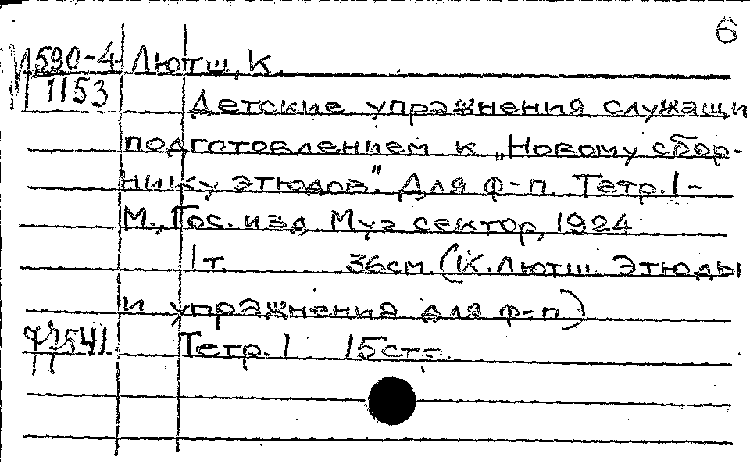 6
И590-4 Лютш, К.
1153
Детские упражнения служащи
подготовлением к „Новому сбор-
нику этюдов". Для ф-п. Тетр. 1 -
М., Гос. изд. Муз сектор, 1924
1 т. 36см. (К. Лютш. Этюды
и упражнения для ф-п)
Тетр. 1 15стр.